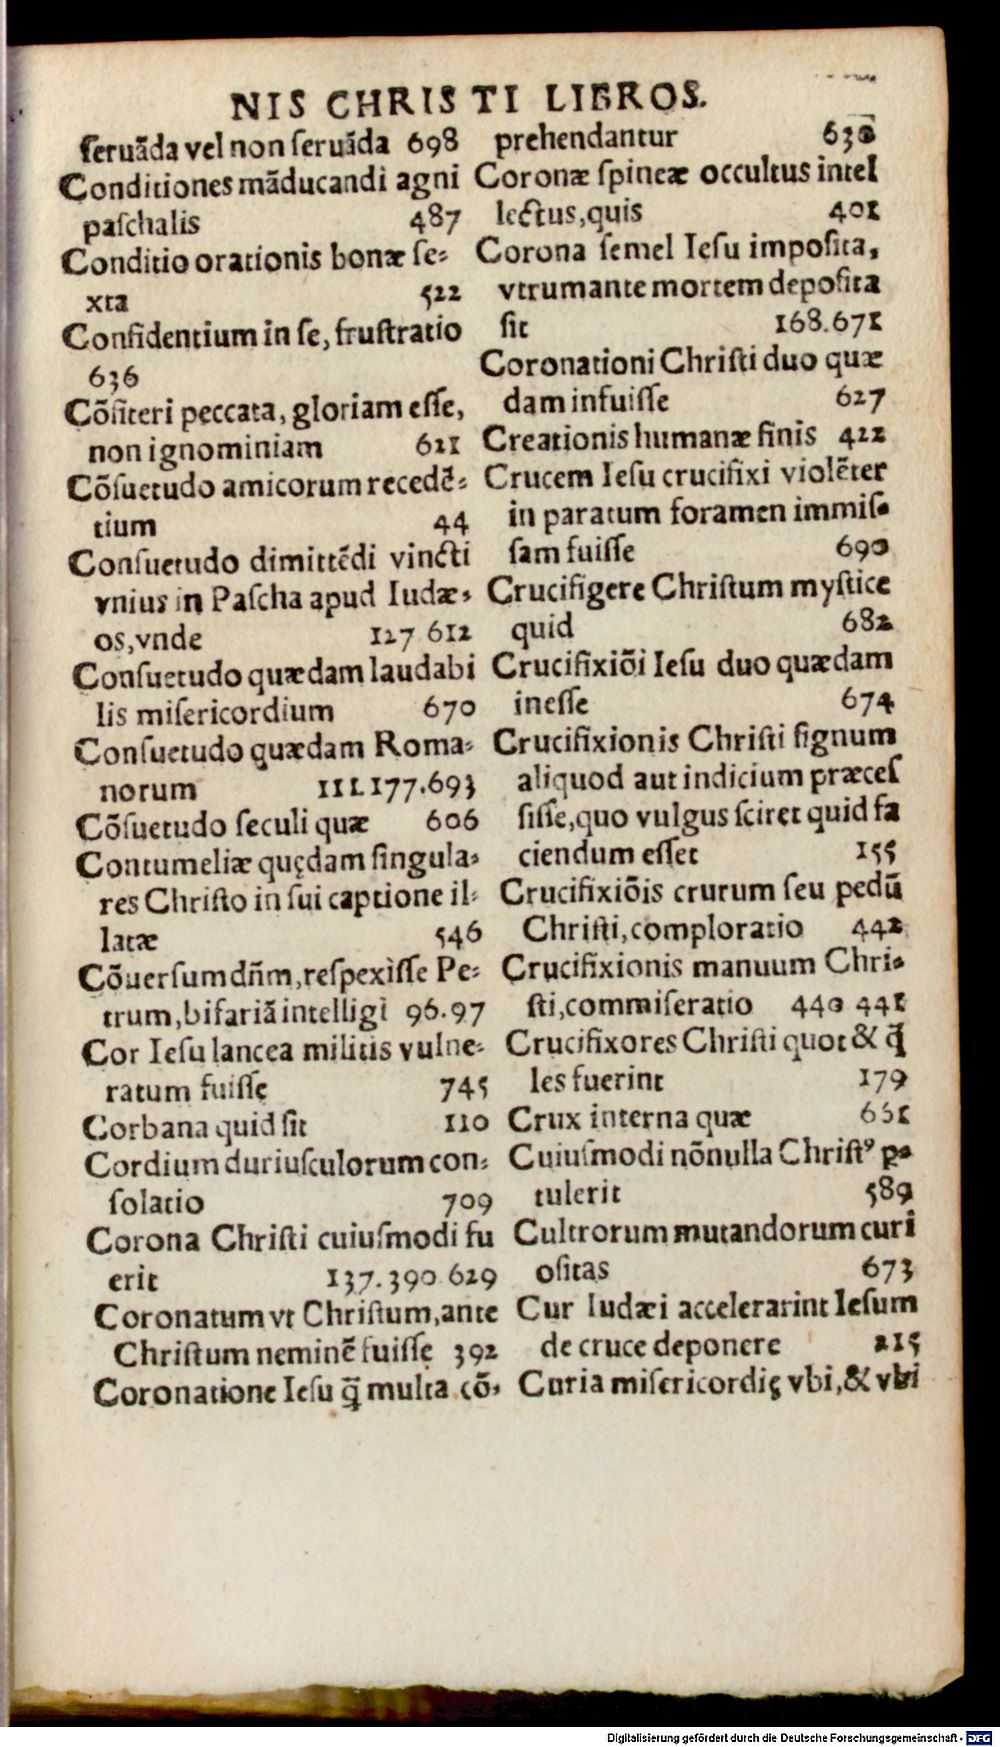 NIS CHRISTI LIBROS.
ſeruãda vel non ſeruãda 698
Conditiones mãducandi agni
paſchalis 487
Conditio orationis bonæ ſe-
xta 522
Confidentium in ſe, fruſtratio
636
Cõfiteri peccata, gloriam eſſe,
non ignominiam 621
Cõſuetudo amicorum recedẽ-
tium 44
Conſuetudo dimittẽdi vincti
vnius in Paſcha apud Iudæ-
os, vnde 127 612
Conſuetudo quædam laudabi
lis miſericordium 670
Conſuetudo quædam Roma-
norum 111.177.693
Cõſuetudo ſeculi quæ 606
Contumeliæ quędam ſingula-
res Chriſto in ſui captione il-
latæ 546
Cõuerſum dñm, reſpexiſſe Pe-
trum, bifariã intelligi 96.97
Cor Ieſu lancea militis vulne-
ratum fuiſſe 745
Corbana quid ſit 110
Cordium duriuſculorum con-
ſolatio 709
Corona Chriſti cuiuſmodi fu
erit 137.390 629
Coronatum vt Chriſtum, ante
Chriſtum neminẽ fuiſſe 392
Coronatione Ieſu q̃ multa cõ-
prehendantur 630
Coronæ ſpineæ occultus intel
lectus, quis 401
Corona ſemel Ieſu impoſita,
vtrum ante mortem depoſita
ſit 168.671
Coronationi Chriſti duo quæ
dam infuiſſe 627
Creationis humanæ finis 422
Crucem Ieſu crucifixi violẽter
in paratum foramen immiſ-
ſam fuiſſe 690
Crucifigere Chriſtum myſtice
quid 682
Crucifixiõi Ieſu duo quædam
ineſſe 674
Crucifixionis Chriſti ſignum
aliquod aut indicium præceſ
ſiſſe, quo vulgus ſciret quid fa
ciendum eſſet 155
Crucifixiõis crurum ſeu pedũ
Chriſti, comploratio 442
Crucifixionis manuum Chri-
ſti, commiſeratio 440 441
Crucifixores Chriſti quot & q̃
les fuerint 179
Crux interna quæ 661
Cuiuſmodi nõnulla Chriſtꝰ ꝑ-
tulerit 589
Cultrorum mutandorum curi
oſitas 673
Cur Iudæi accelerarint Ieſum
de cruce deponere 215
Curia miſericordię vbi, & vbi
Digitalisierung gefördert durch die Deutsche Forschungsgemeinschaft - DFG